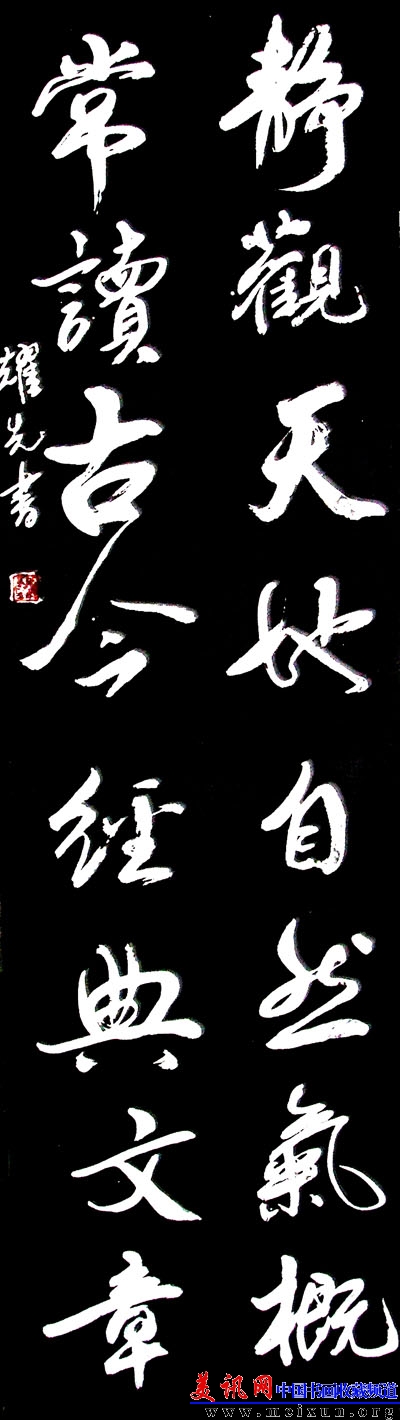 靜觀天地自然氣概
常讀古今經典文章
耀先書
美讯网 中国书画收藏频道
www.meixun.org